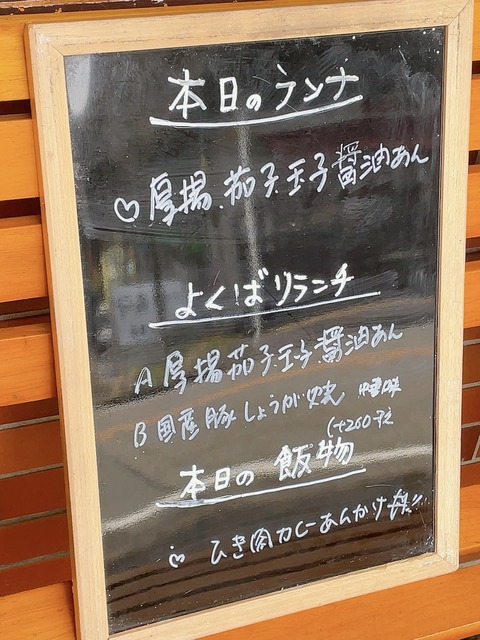 本日のランチ
♡厚揚.茄子玉子醤油あん
よくばりランチ
A 厚揚茄子玉子醤油あん
B 国産豚しょうが焼
本日の飯物
ひき肉カレーあんかけ丼!!